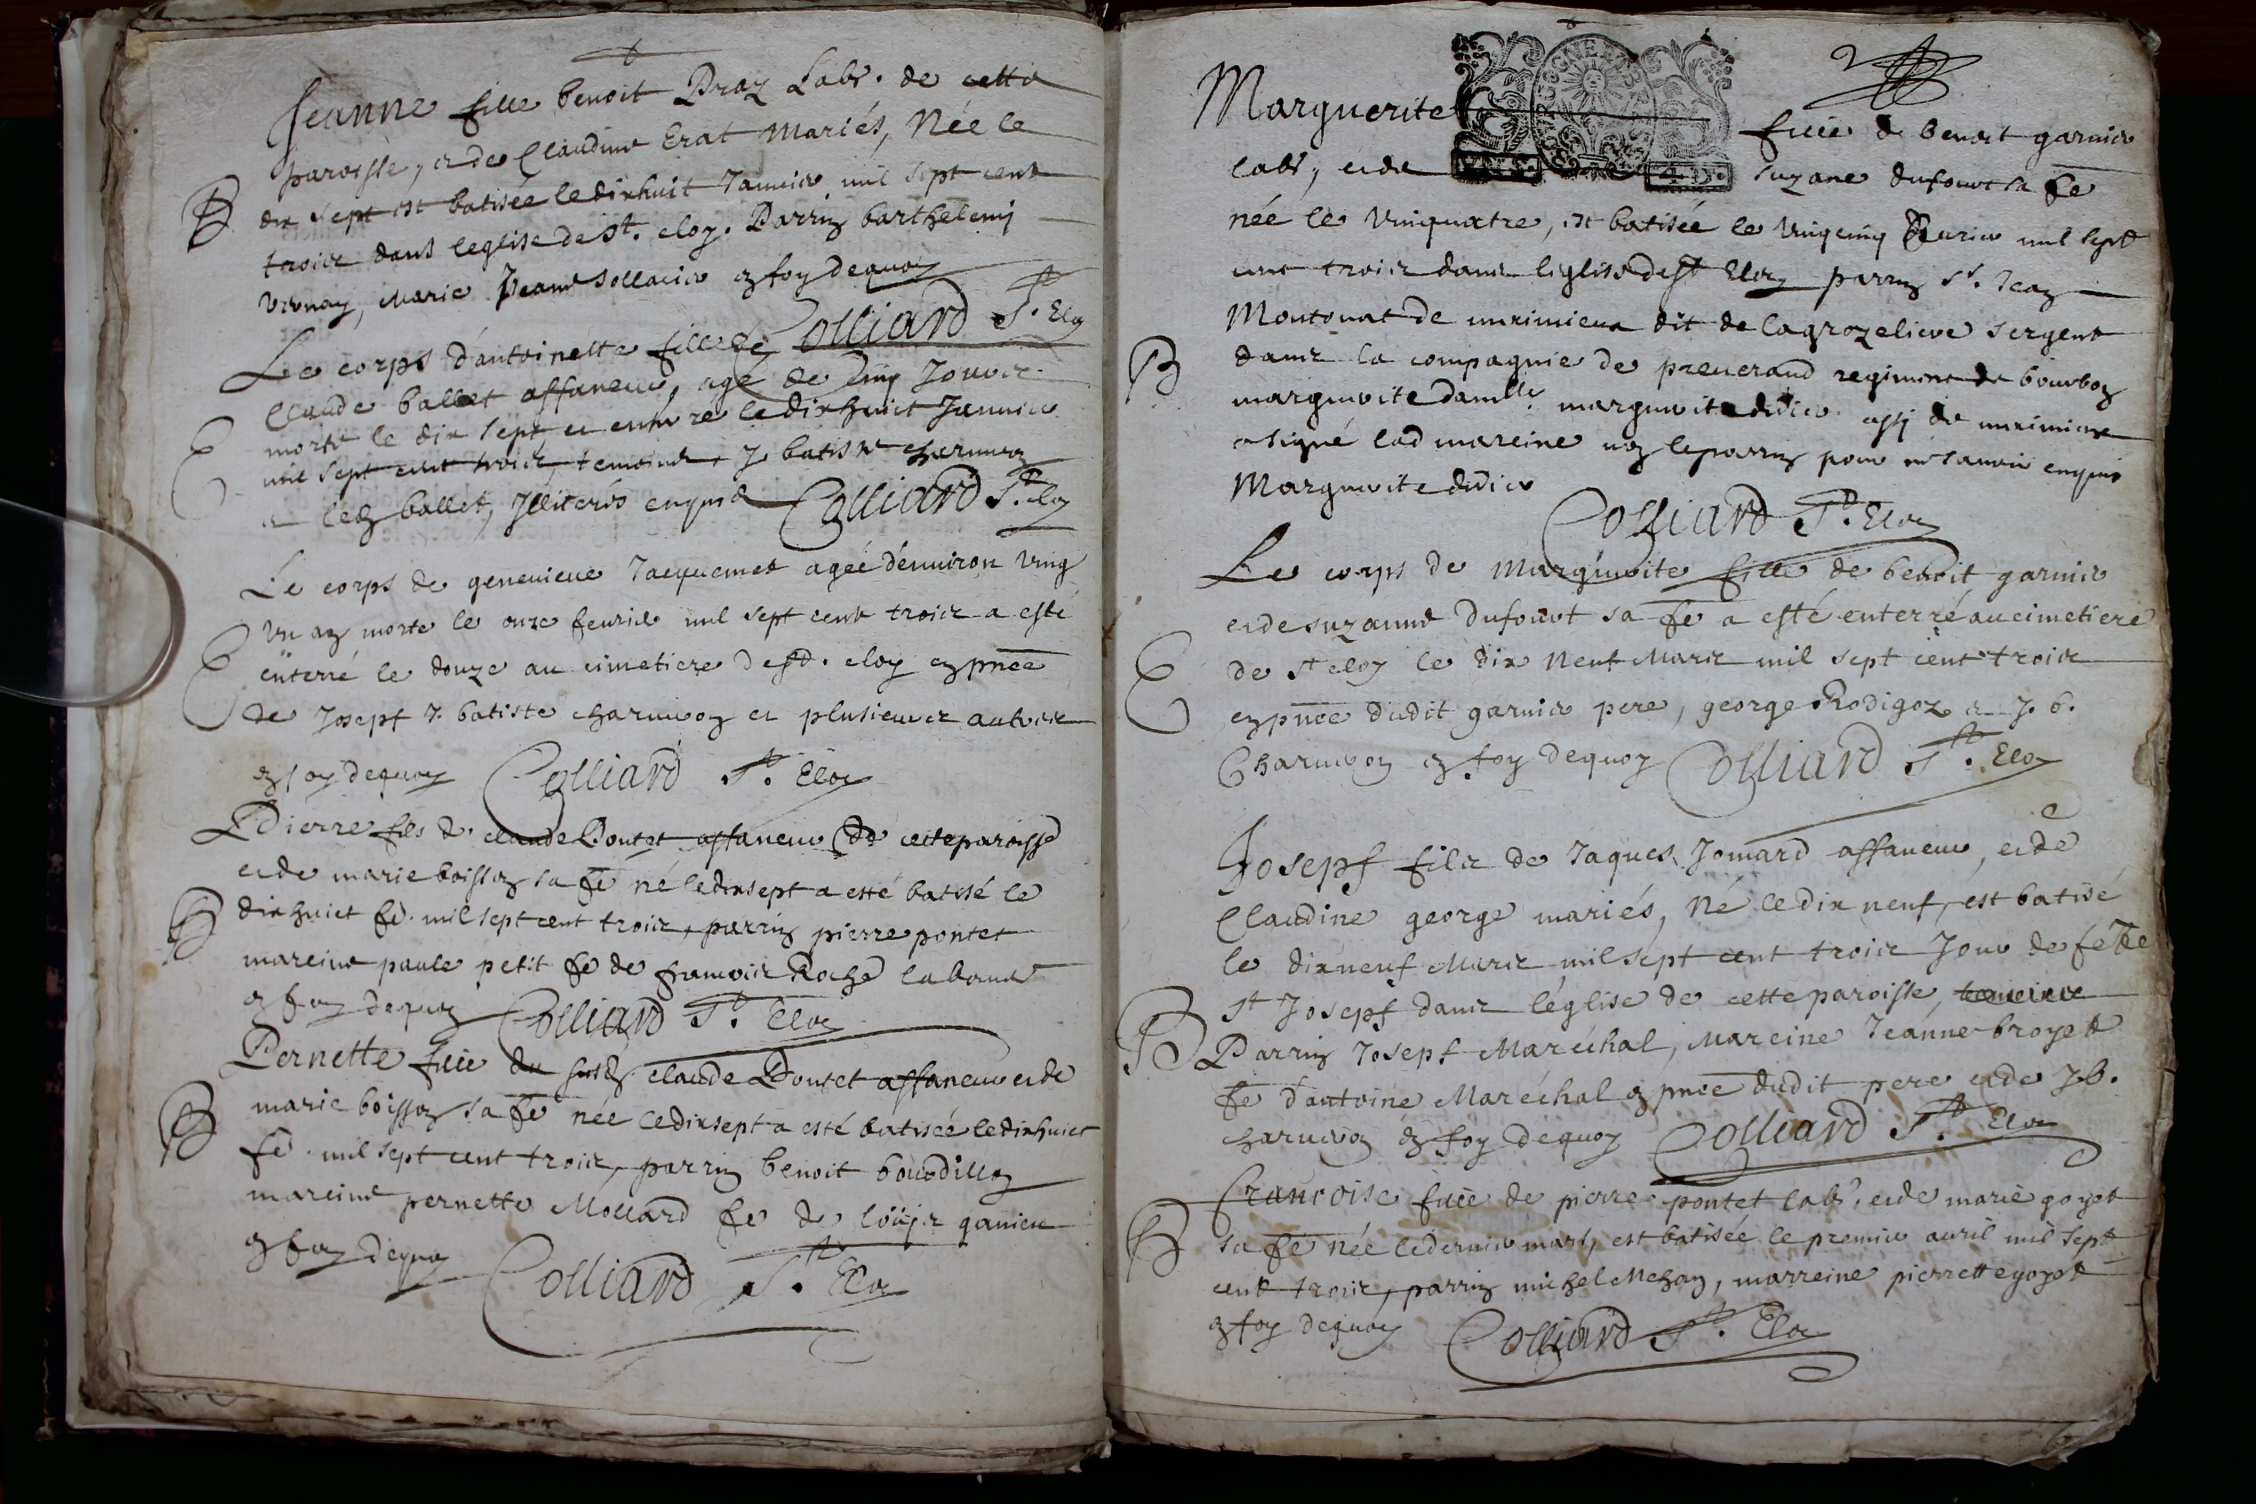 Jeanne fille benoit Praz Labr. de cette
paroisse, et de Claudine Erat Mariés, Née le
B
dix sept est batisée le dixhuit Januier mil sept cent
troiz dans leglise de St. eloy. Parrin barthelemi
vernay, Marie Jeane Sollacier en foy dequoy
Colliard St. Eloy
Le corps d'antoinette fille de
Claude ballet affaneur, agé de Cinq Jourz
E
morte le dix sept et enterré le dixhuict Januier
mil sept cent troiz temoinz, J. batiste charueron
et ballet, Illiterés enquis Colliard St. eloy
Le corps de geneuieue Jacquemet ageé d'enuiron ving
Vn an morte le onze feurier mil sept cent troiz a esté
E
enterré le douze au cimetiere de St. eloy en pnce
de Josepf J. batiste charueron et plusieurz autrez
en foy dequoy Colliard St. Eloy
Pierre fils de claude Pontet affaneur de cette paroisse
et de marie boisson sa fe né le dixsept a esté batisé le
B
dixhuict fe. mil sept cent troiz, parrin pierre pontet
mareine paule petit fe de francoiz Roche laboureur
en foy dequoy Colliard St. Eloy
Pernette fille du susd. claude Pontet affaneur et de
B
marie boisson sa fe née le dixsept a esté batisée le dixhuict
fe. mil sept cent troiz, parrin benoit bourdillon
mareine pernette Mollard fe de loüiz ganieu
en foy dequoy
Colliard St. Eloy
Marguerite fille de benoit garnier
labr, et de suzane dufour sa fe
née le vinquatre, est batisée le vingcinq feurier mil sept
cent troiz danz leglise de St Eloy parrin Sr. Jean
Montouat de meximieux dit de lagrozeliere sergent
B
danz la compagnie de preuerand regiment de bourbon
marguerite damlle marguerite didier assi de meximieux
a signé lad mareine non le parrin pour ne sauoir enquis
Marguerite didier
Colliard St. Eloy
Le corps de Marguerite fille de benoit garnier
et de suzanne dufour sa fe a esté enterré au cimetiere
E
de st eloy le dix Neuf Marz mil sept cent troiz
en pnce dudit garnier pere, george Rodigoz et J. b.
Charueron en foy dequoy Colliard St. Eloy
Josepf filz de Jaques Jomard affaneur, et de
Claudine george mariés, Né le dix neuf, est batisé
le dixneuf Marz mil sept cent troiz Jour de fête
st Josepf danz léglise de cette paroisse,
B
Parrin Josepf Maréchal, Mareine Jeánne broyet
fe d'antoine Maréchal en pnce dudit pere et de J.b.
charueron en foy dequoy Colliard St. Eloy
Francoise fille de pierre pontet labr. et de marie goyet
B
sa fe née le dernier mars, est batisée le premier auril mil sept
cent troiz, parrin michel Mehay, marreine pierrette goyet
en foy dequoy Colliard St. Eloy